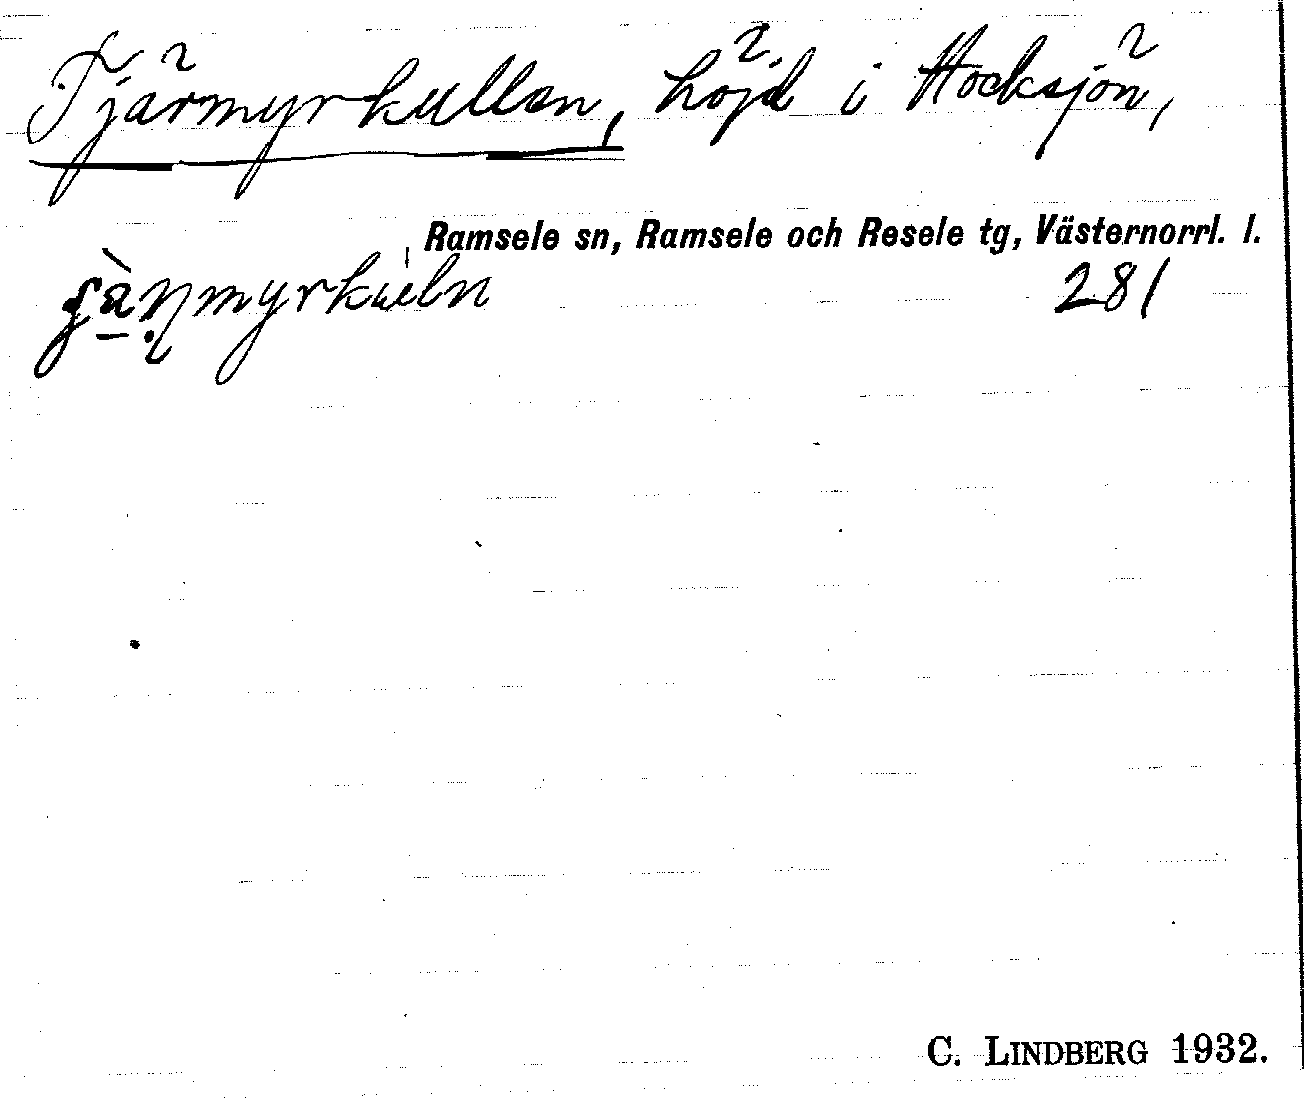 Tjärmyrkullen, höjd i Hocksjön,
Ramsele sn, Ramsele och Resele tg, Västernorrl. l.
281
C. LINDBERG 1932.